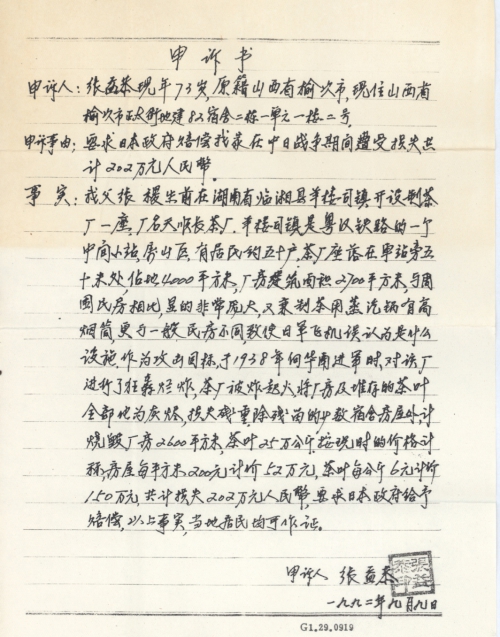 申诉书
申诉人：张益泰现年73岁，原籍山西省榆次市，现住山西省
榆次市 82宿舍二栋一单元一楼二号
申诉事由：要求日本政府赔偿我家在中日战争期间遭受损失共
计202万元人民币
事实：我父张 生前在湖南省临湘县羊楼司镇开设制茶
厂一座，厂名天顺长茶厂。羊楼司镇是粤汉铁路的一个
中间小站，属山区，有居民约五十户，茶厂座落在车站旁五
十米处，占地4000平方米，厂房建筑面积2700平方米，与周
围民房相比，显的非常庞大，又兼制茶用蒸汽锅有高
烟筒更与一般民房不同，致使日军飞机误认为是什么
设施，作为攻击目标，于1938年向华南进军时，对该厂
进行了狂轰烂炸，茶厂被炸起火将厂房及堆存的茶叶
全部化为灰烬，损失 重除残 的少数宿舍房屋外计
烧毁厂房2600平方米，茶叶25万公斤，按现时的价格计
称，房屋每平方米200元计价52万元，茶叶每公斤6元计价
150万元，共计损失202万元人民币，要求日本政府给予
赔偿，以上事实，当地居民均可作证。
申诉人 张益泰
张益泰印
一九九二年九月九日
G1.29.0919